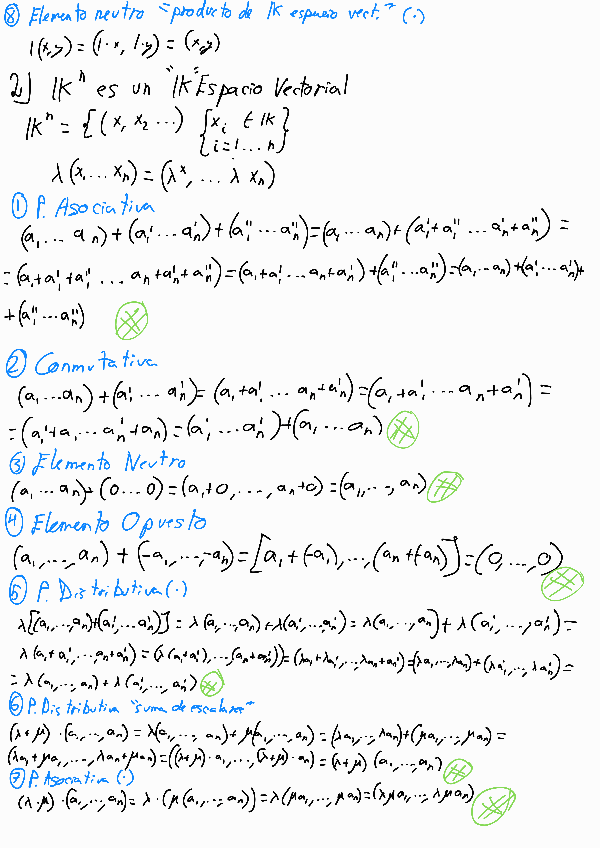 ⑧ Elemento neutro "producto de IK espacio vect." (·)
1(x,y) = (1·x, 1·y) = (x,y)
2) IKⁿ es un "IK" Espacio Vectorial
IKⁿ = {(x₁ x₂ ...) {xᵢ ∈ IK}
{i=1 ... n}
λ(x₁...xₙ) = (λx, ... λxₙ)
① P. Asociativa
(a₁ ... aₙ) + (a'₁ ... a'ₙ) + (a''₁ ... a''ₙ) = (a₁ ... aₙ) + (a'₁+a''₁ ... a'ₙ+a''ₙ) =
= (a₁+a'₁+a''₁ ... aₙ+a'ₙ+a''ₙ) = (a₁+a'₁ ... aₙ+a'ₙ) + (a''₁ ... a''ₙ) = (a₁ ... aₙ) + (a'₁ ... a'ₙ) +
+ (a''₁ ... a''ₙ)
② Conmutativa
(a₁ ... aₙ) + (a'₁ ... a'ₙ) = (a₁+a'₁ ... aₙ+a'ₙ) = (a₁+a'₁ ... aₙ+a'ₙ) =
= (a'₁+a₁ ... a'ₙ+aₙ) = (a'₁ ... a'ₙ) + (a₁ ... aₙ)
③ Elemento Neutro
(a₁ ... aₙ) + (0 ... 0) = (a₁+0, ..., aₙ+0) = (a₁, ..., aₙ)
④ Elemento Opuesto
(a₁, ..., aₙ) + (-a₁, ..., -aₙ) = [a₁+(-a₁), ..., (aₙ+(-aₙ)] = (0, ..., 0)
⑤ P. Distributiva (·)
λ[(a₁, ..., aₙ) + (a'₁, ... a'ₙ)] = λ(a₁, ..., aₙ) + λ(a'₁, ... a'ₙ) = λ(a₁, ..., aₙ) + λ(a'₁, ..., a'ₙ) =
λ(a₁+a'₁, ..., aₙ+a'ₙ) = (λ(a₁+a'₁), ..., (aₙ+a'ₙ)) = (λa₁+λa'₁, ..., λaₙ+a'ₙ) = (λa₁, ..., λaₙ) + (λa'₁, ..., λa'ₙ) =
= λ(a₁, ..., aₙ) + λ(a'₁, ..., a'ₙ)
⑥ P. Distributiva "suma de escalares"
(λ+μ)·(a₁, ..., aₙ) = λ(a₁, ..., aₙ) + μ(a₁, ..., aₙ) = (λa₁, ..., λaₙ) + (μa₁, ..., μaₙ) =
(λa₁+μa₁, ..., λaₙ+μaₙ) = ((λ+μ)·a₁, ..., (λ+μ)·aₙ) = (λ+μ)(a₁, ..., aₙ)
⑦ P. Asociativa (·)
(λ·μ)·(a₁, ..., aₙ) = λ·(μ(a₁, ..., aₙ)) = λ(μa₁, ..., μaₙ) = (λμa₁, ..., λμaₙ)